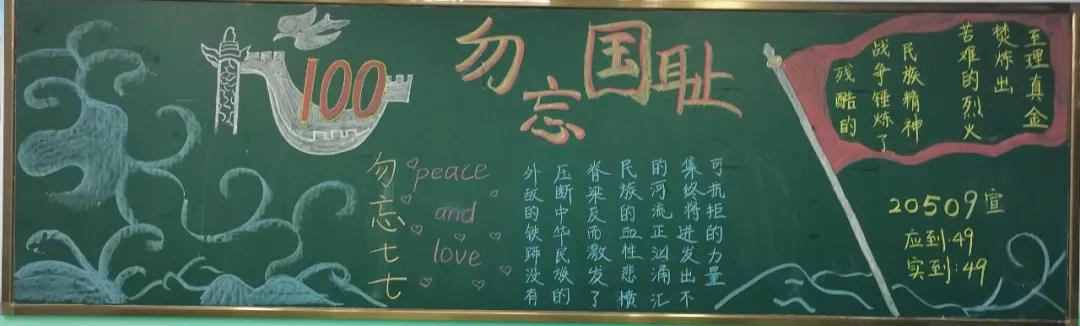 100
勿忘国耻
勿忘七七
peace
and
love
外敌的铁蹄没有
压断中华民族的
脊梁反而激发了
民族的血性悲横
的河流正汹涌汇
集终将迸发出不
可抗拒的力量
残酷的
战争锤炼了
民族精神
苦难的烈火
焚炼出
至理真金
20509宣
应到:49
实到:49